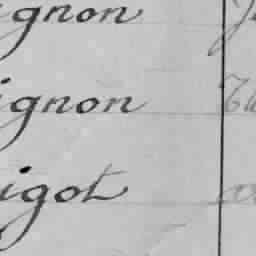 ignon
ignon
igot